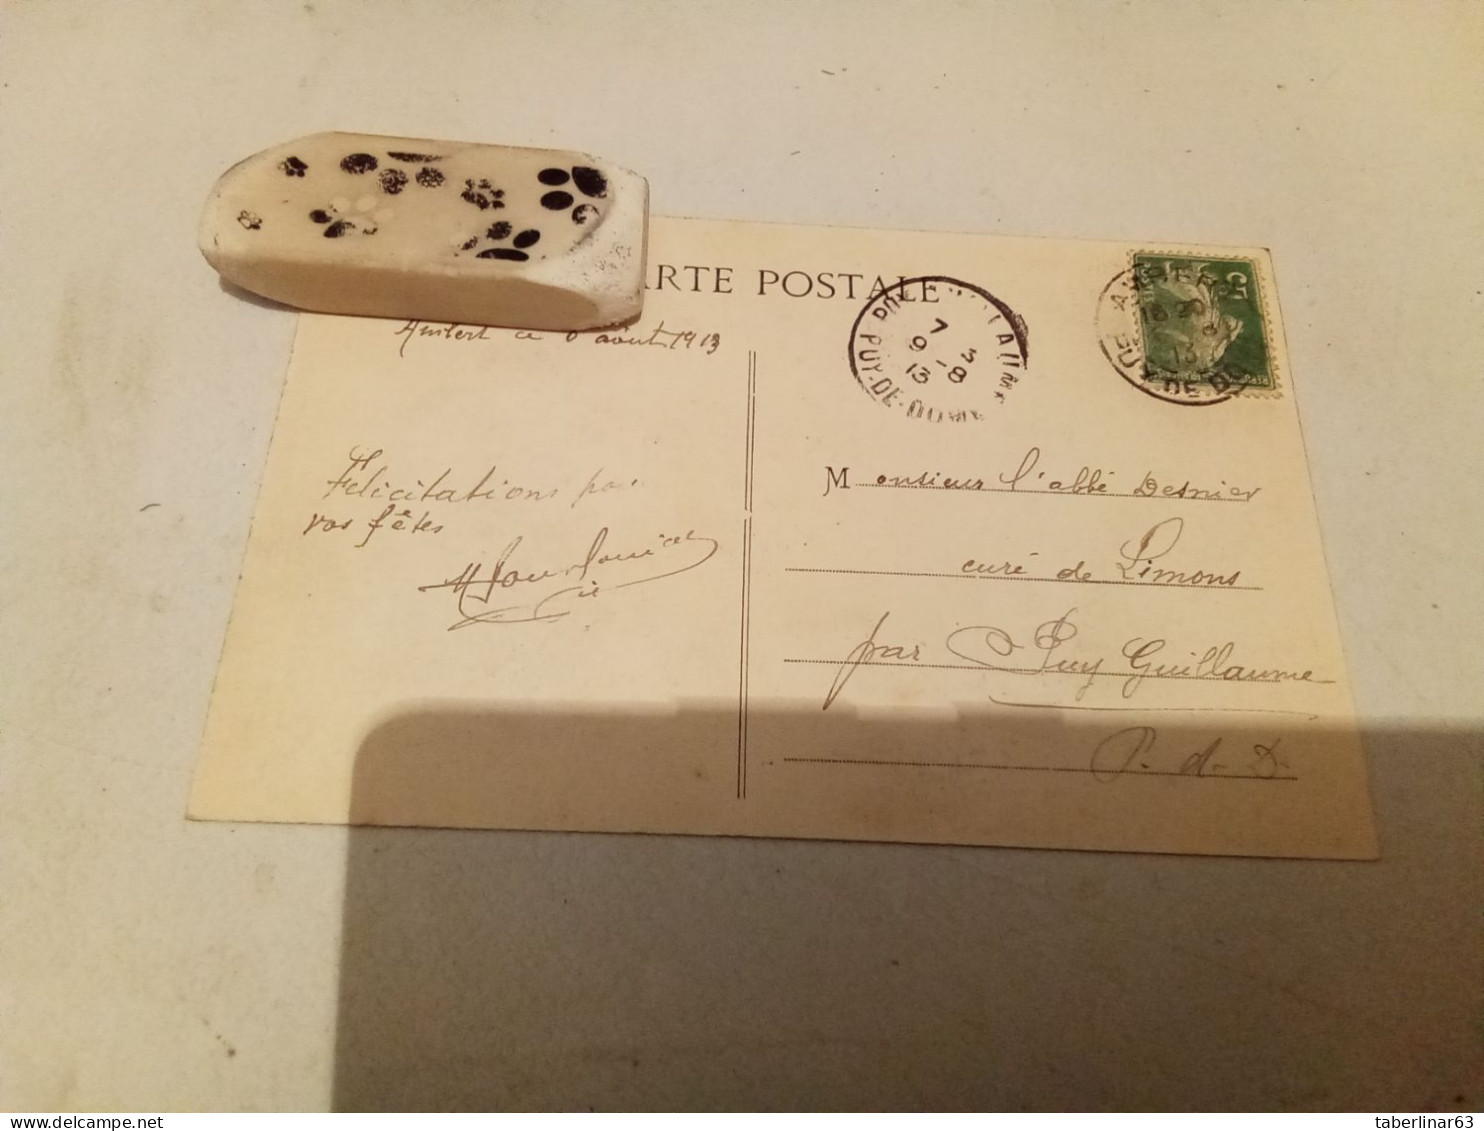 ARTE POSTALE
Ambert ce 8 août 1913
Félicitations pour
vos fêtes
Monsieur l'abbé Desnier
curé de Limons
par Puy Guillaume
P. d. D.
7 3
9 -8
13
PUY-DE-DOME
AMBERT
18 30
8
13
PUY-DE-DOME
5
www.delcampe.net
taberlinar63